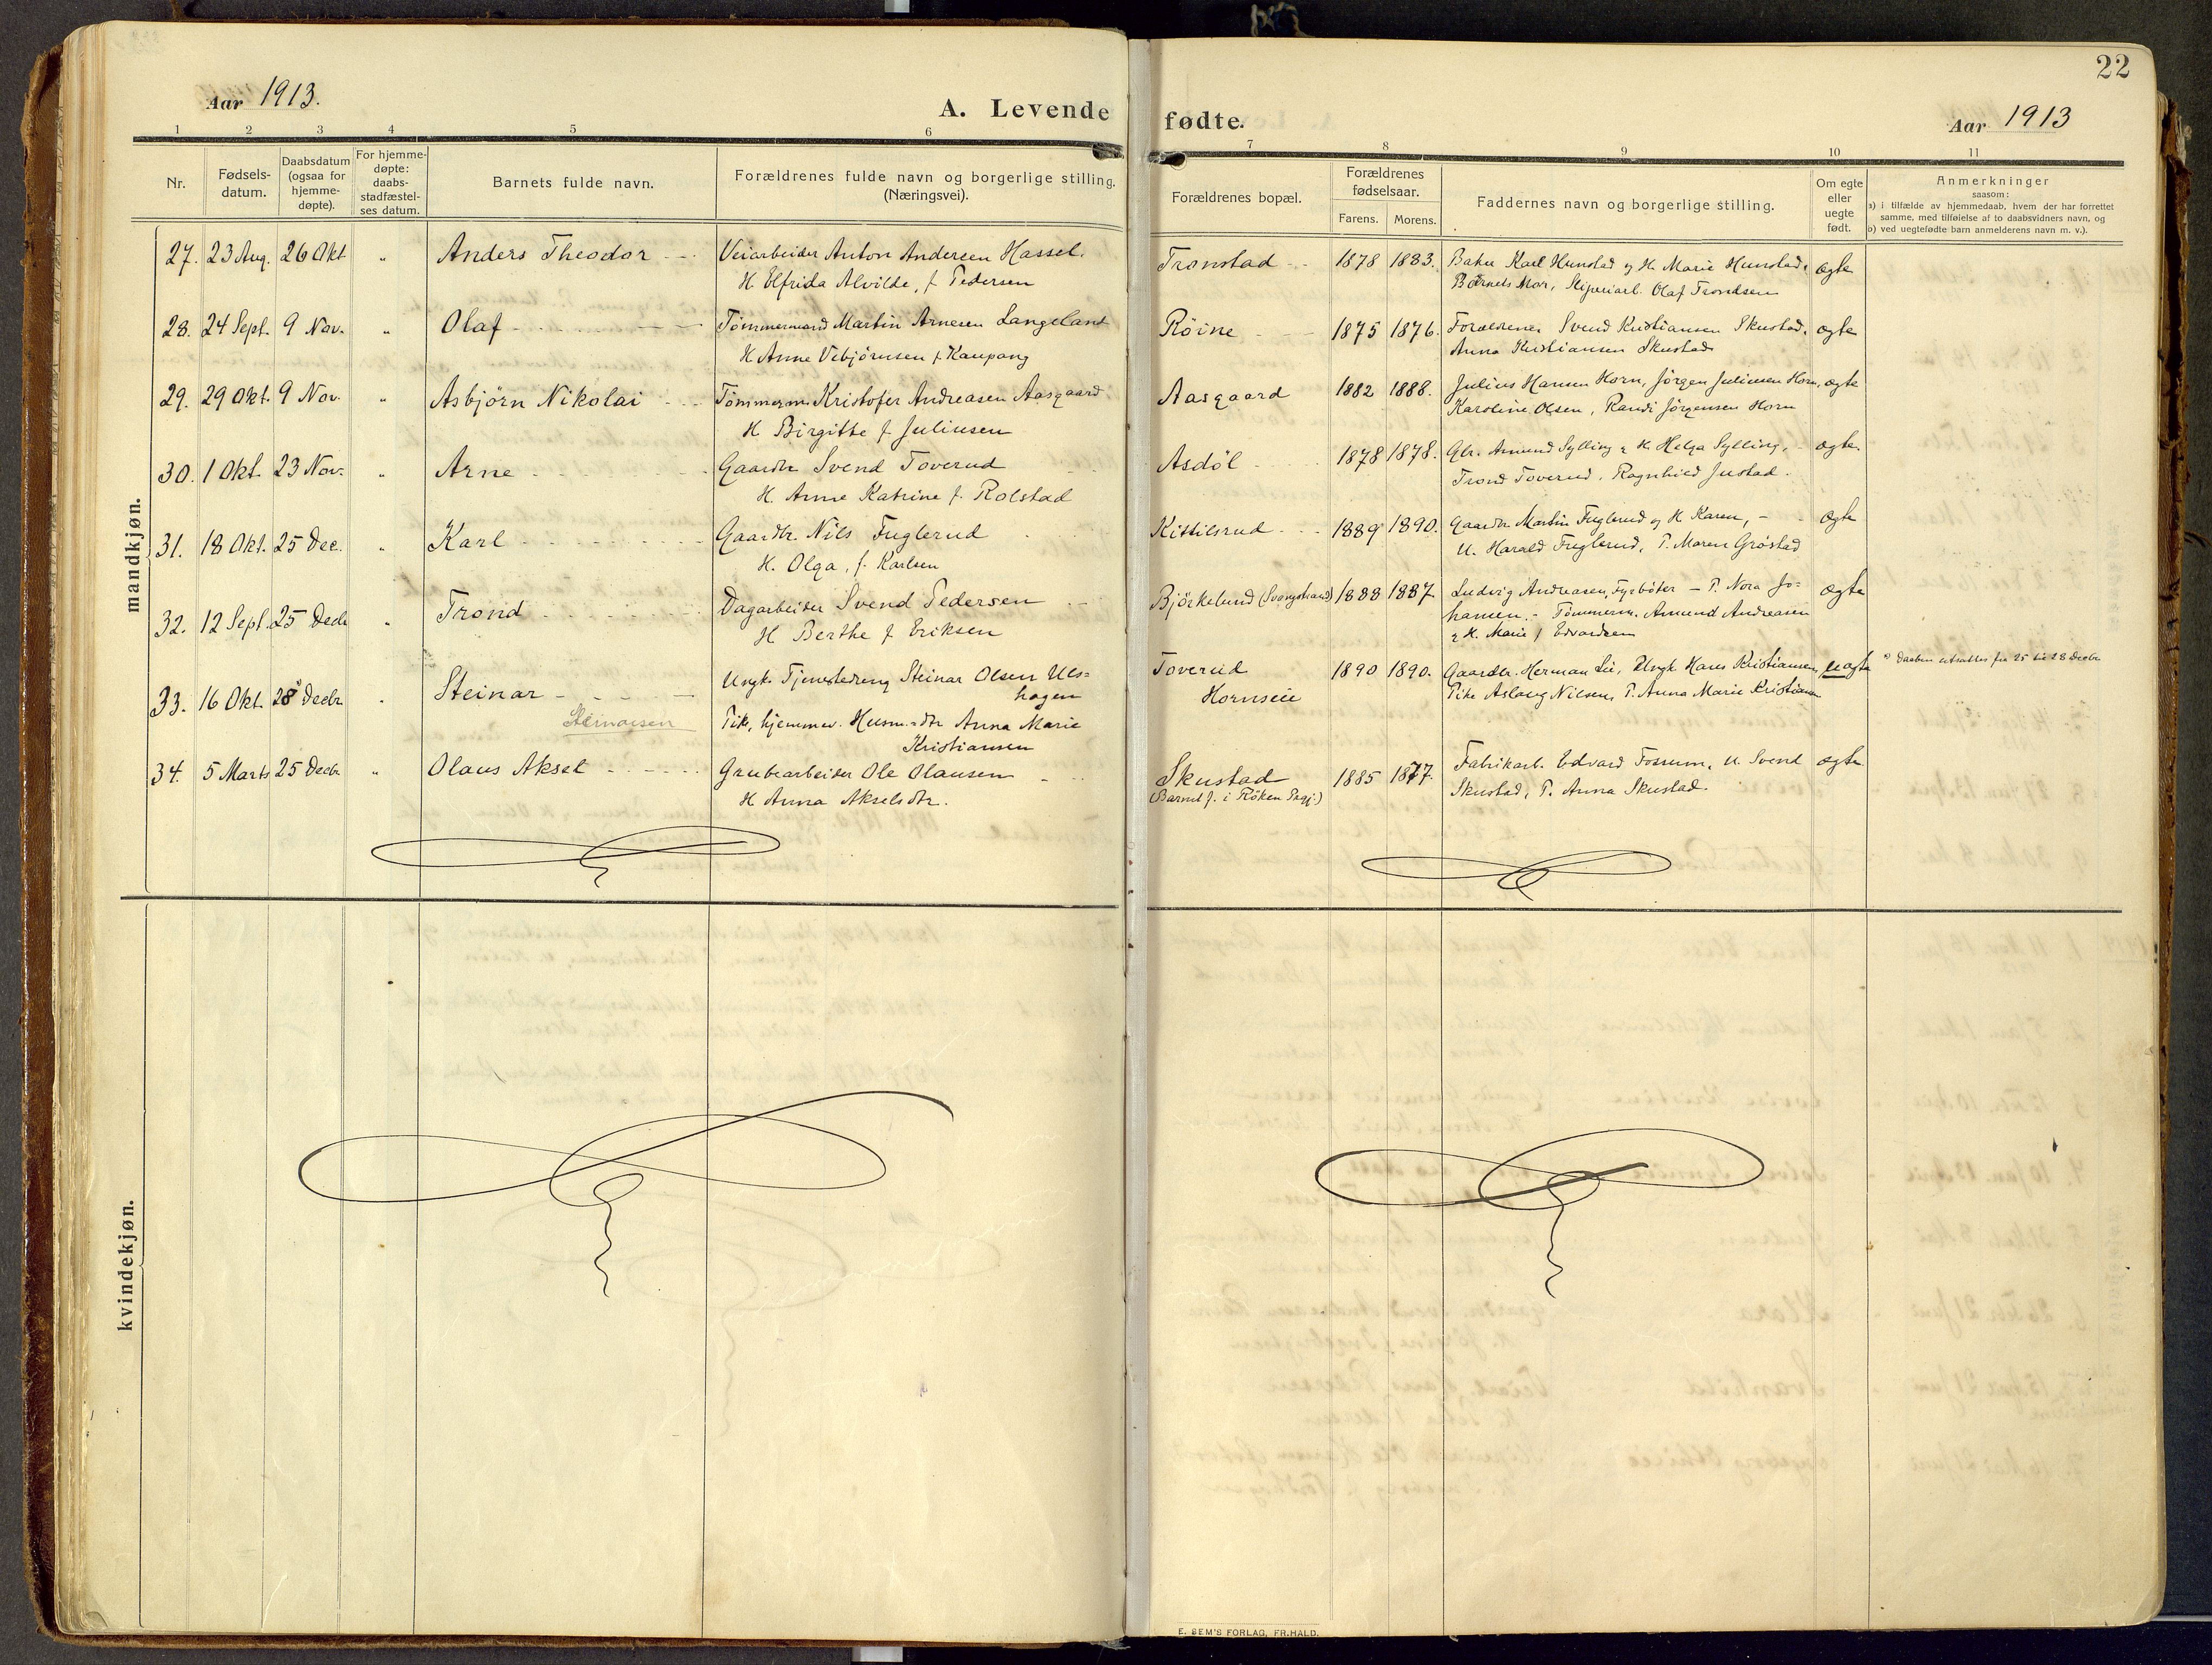 22
Aar 1913.
A. Levende
fødte.
Aar 1913
1 2 3 4 5 6
7 8 9 10 11
Nr.
Fødsels-
datum.
Daabsdatum
(ogsaa for
hjemme-
døpte).
For hjemme-
døpte:
daabs-
stadfæstel-
ses datum.
Barnets fulde navn.
Forældrenes fulde navn og borgerlige stilling.
(Næringsvei).
Forældrenes bopæl.
Forældrenes
fødselsaar.
Farens. Morens.
Faddernes navn og borgerlige stilling.
Om egte
eller
uegte
født.
Anmerkninger
saasom:
a) i tilfælde av hjemmedaab, hvem der har forrettet
samme, med tilføielse af to daabsvidners navn, og
b) ved uegtefødte barn anmelderens navn m. v.).
mandkjøn.
27. 23 Aug. 26 Okt „ Anders Theodor Veiarbeider Anton Andersen Hassel. Tronstad 1878 1883. Baker Karl Hunstad og H. Marie Hunstad, egte
H. Elfrida Alvilde, f. Pedersen Barnets Mor, Sliperiarb. Olaf Trondsen
28. 24 Sept. 9 Nov. „ Olaf Tømmermand Martin Arnesen Langeland Röine 1875 1876. Forældrene, Svend Kristiansen Skustad, egte
H Anne Vebjørnsen f. Kaupang Anna Kristiansen Skustad
29. 29 Okt. 9 Nov. „ Asbjörn Nikolai Tömmerm. Kristofer Andreasen Aasgaard Aasgaard 1882 1888. Julius Hansen Horn, Jörgen Juliusen Horn, egte
H. Birgitte f. Juliusen Karoline Olsen, Randi Jörgensen Horn
30. 1 Okt. 23 Nov. „ Arne Gaardbr. Svend Toverud Asdöl 1878 1878. Gbr. Amund Sylling & H. Helga Sylling, egte.
H. Anne Katrine f. Rolstad Trond Toverud, Ragnhild Justad.
31. 18 Okt. 25 Dec. „ Karl Gaardbr. Nils Fuglerud Kittilsrud 1889 1890. Gaardbr. Martin Fuglerud og H Karen, egte
H. Olga, f. Karlsen U. Harald Fuglerud, P. Maren Gröstad
32. 12 Sept. 25 Decb „ Trond Dagarbeider Svend Pedersen Björkelund (Svangstrand) 1888 1887 Ludvig Andreasen, Fyrböter – P. Nora Jo= egte
H Berthe f Eriksen hansen. – Tömmerm. Amund Andreasen
& H. Marie f Edvardsen
33. 16 Okt. 28 Decbr. „ Steinar Ungk. Tjenestedreng Steinar Olsen Uls= Toverud 1890 1890. Gaardbr. Herman Lie, Ungk Hans Kristiansen, uegte
hagen Hornseie Pike Aslaug Nilsen, P. Anna Marie Kristiansen
Daaben utsattes fra 25 til 28 Decbr
Steinarsen Pike, hjemmev. Husm.dtr Anna Marie
Kristiansen
34. 5 Marts 25 Decbr „ Olaus Aksel Grubearbeider Ole Olausen Skustad 1885 1877. Fabrikarb. Edvard Fossum, U. Svend egte
H Anna Akselsdtr. (Barnet f. i Röken Prgj.) Skustad, P. Anna Skustad.
kvindekjøn.
E. SEM'S FORLAG, FR.HALD.